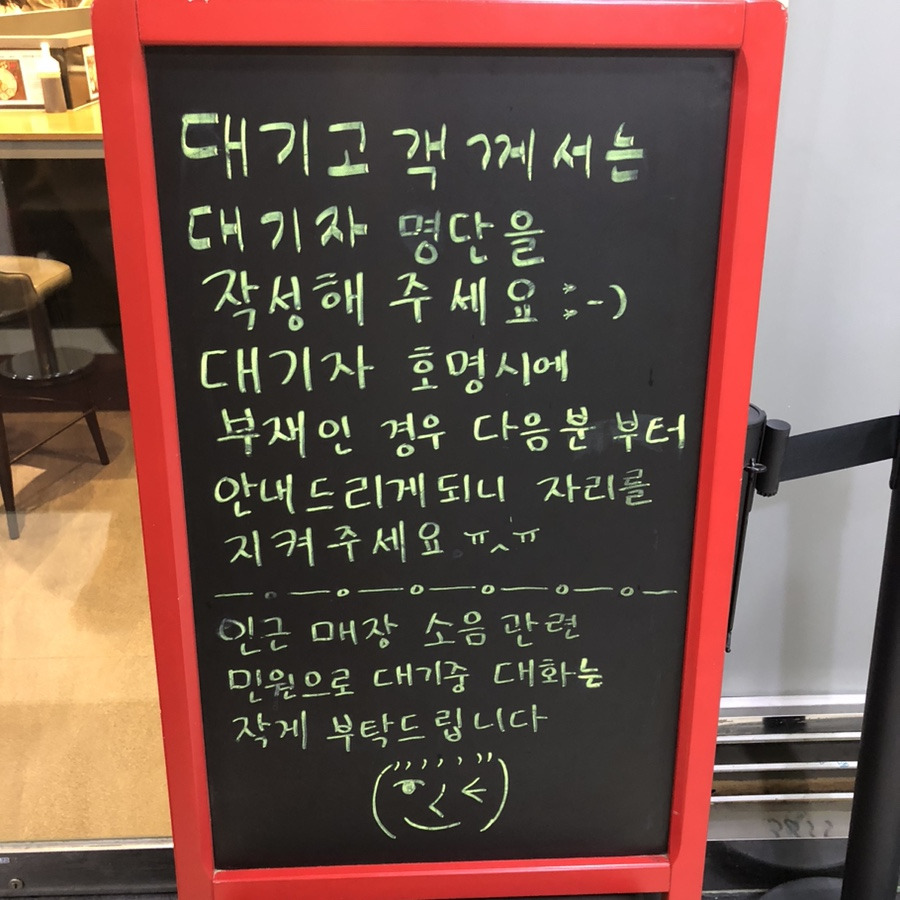 대기고객께서는
대기자 명단을
작성해 주세요 :-)
대기자 호명시에
부재인 경우 다음분 부터
안내드리게되니 자리를
지켜주세요 ㅠ^ㅠ
인근 매장 소음관련
민원으로 대기중 대화는
작게 부탁드립니다